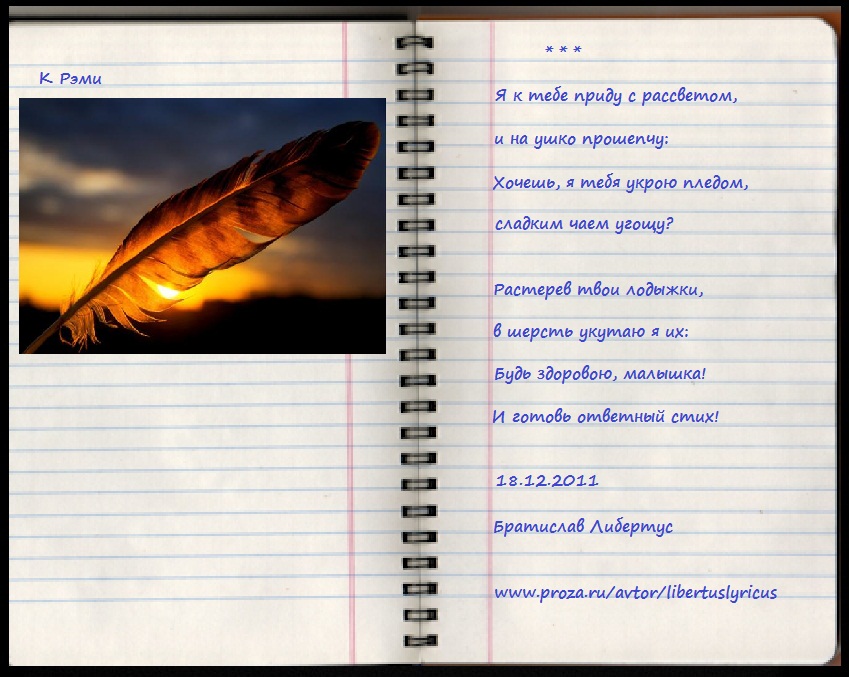 К Рэми
* * *
Я к тебе приду с рассветом,
и на ушко прошепчу:
Хочешь, я тебя укрою пледом,
сладким чаем угощу?
Растерев твои лодыжки,
в шерсть укутаю я их:
Будь здоровою, малышка!
И готовь ответный стих!
18.12.2011
Братислав Либертус
www.proza.ru/avtor/libertuslyricus